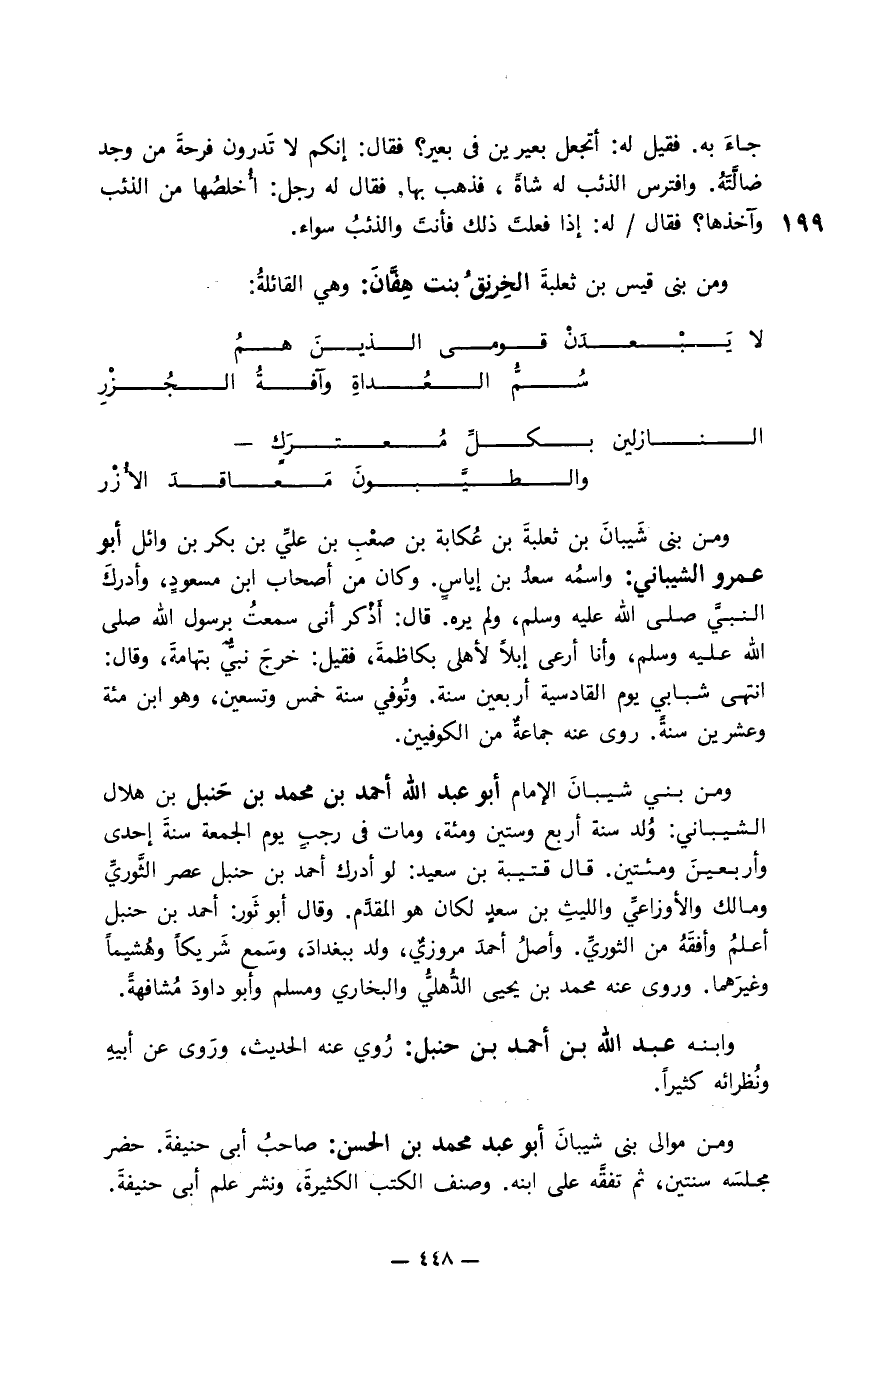 جاءَ به. فقيل له: أتجعل بعيرين فى بعير؟ فقال: إنكم لا تَدرون فرحةَ من وجد
ضالَّتَهُ. وافترس الذئب له شاةً ، فذهب بها, فقال له رجل: أُخلصُها من الذئب
١٩٩ وآخذها؟ فقال / له: إذا فعلتَ ذلك فأنتَ والذئبُ سواء.
ومن بنى قيس بن ثعلبةَ الخِرنِقُ بنت هِفَّانَ: وهي القائلةُ:
لا يَبْعدَنْ قومى الذينَ همُ
سُمُّ العُداةِ وآفةُ الجُزْرِ
النازلين بكلِّ مُعتركٍ –
والطيَّبونَ مَعاقدَ الأُزْر
ومن بنى شَيبانَ بن ثعلبةَ بن عُكابة بن صعْبِ بن عليِّ بن بكر بن وائل أبو
عمرو الشيباني: واسمُه سعدُ بن إياسٍ. وكان من أصحاب ابن مسعودٍ، وأدركَ
النبيَّ صلى الله عليه وسلم، ولم يره. قال: أَذْكر أنى سمعتُ برسول الله صلى
الله عليه وسلم، وأنا أرعى إبلاً لأهلى بكاظمةَ، فقيل: خرجَ نبيٌّ بتهامةَ، وقال:
انتهى شبابي يوم القادسية أربعين سنة. وتُوفي سنة خمس وتسعين، وهو ابن مئة
وعشرين سنةً. روى عنه جماعةٌ من الكوفيين.
ومن بني شيبانَ الإمام أبو عبد الله أحمد بن محمد بن حَنبل بن هلال
الشيباني: وُلد سنة أربع وستين ومئة، ومات فى رجبٍ يوم الجمعة سنةَ إحدى
وأربعينَ ومئتين. قال قتيبة بن سعيد: لو أدرك أحمد بن حنبل عصر الثَّوريِّ
ومالك والأوزاعيِّ والليثِ بن سعدٍ لكان هو المقدَّم. وقال أبو ثَور: أحمد بن حنبل
أعلمُ وأفقَهُ من الثوريِّ. وأصلُ أحمدَ مروزيٌ، ولد ببغدادَ، وسَمع شَريكاً وهُشيماً
وغيرَهما. وروى عنه محمد بن يحيى الذُّهليُّ والبخاري ومسلم وأبو داودَ مُشافهةً.
وابنه عبد الله بن أحمد بن حنبل: رُوي عنه الحديث، ورَوى عن أبيهِ
ونُظرائه كثيراً.
ومن موالى بنى شيبانَ أبو عبد محمد بن الحسن: صاحبُ أبى حنيفةَ. حضر
مجلسَه سنتين، ثم تفقَّه على ابنه. وصنف الكتب الكثيرةَ، ونشر علم أبى حنيفةَ.
– ٤٤٨ –